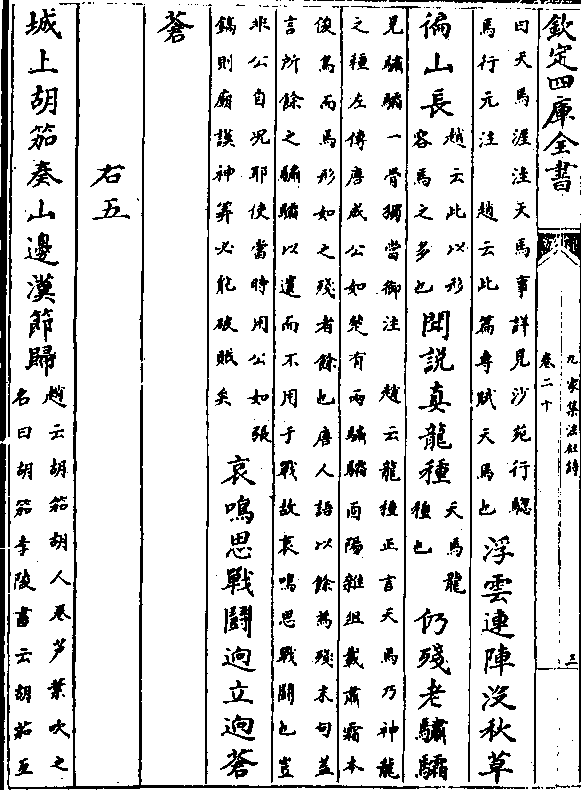 欽定四庫全書
九家集注杜詩
卷二十
三
曰天馬渥洼天馬事詳見沙苑行驄
馬行元注　趙云此篇專賦天馬也
浮雲連陣没秋草
徧山長
趙云此以形
容馬之多也
聞說真龍種
天馬龍
種也
仍殘老驌驦
見驌驦一骨獨當御注　趙云龍種正言天馬乃神龍
之種左傳唐成公如楚有兩驌驦酉陽雜俎載肅霜本
俊鳥而馬形如之殘者餘也唐人語以餘為殘末句蓋
言所餘之驌驦以遺而不用于戰故哀鳴思戰鬪也豈
非公自况耶使當時用公如張
鎬則廟謨神筭必能破賊矣
哀鳴思戰鬪逈立逈蒼
蒼
右五
城上胡笳奏山邊漢節歸
趙云胡笳胡人卷芦葉吹之
名曰胡笳李陵書云胡笳互